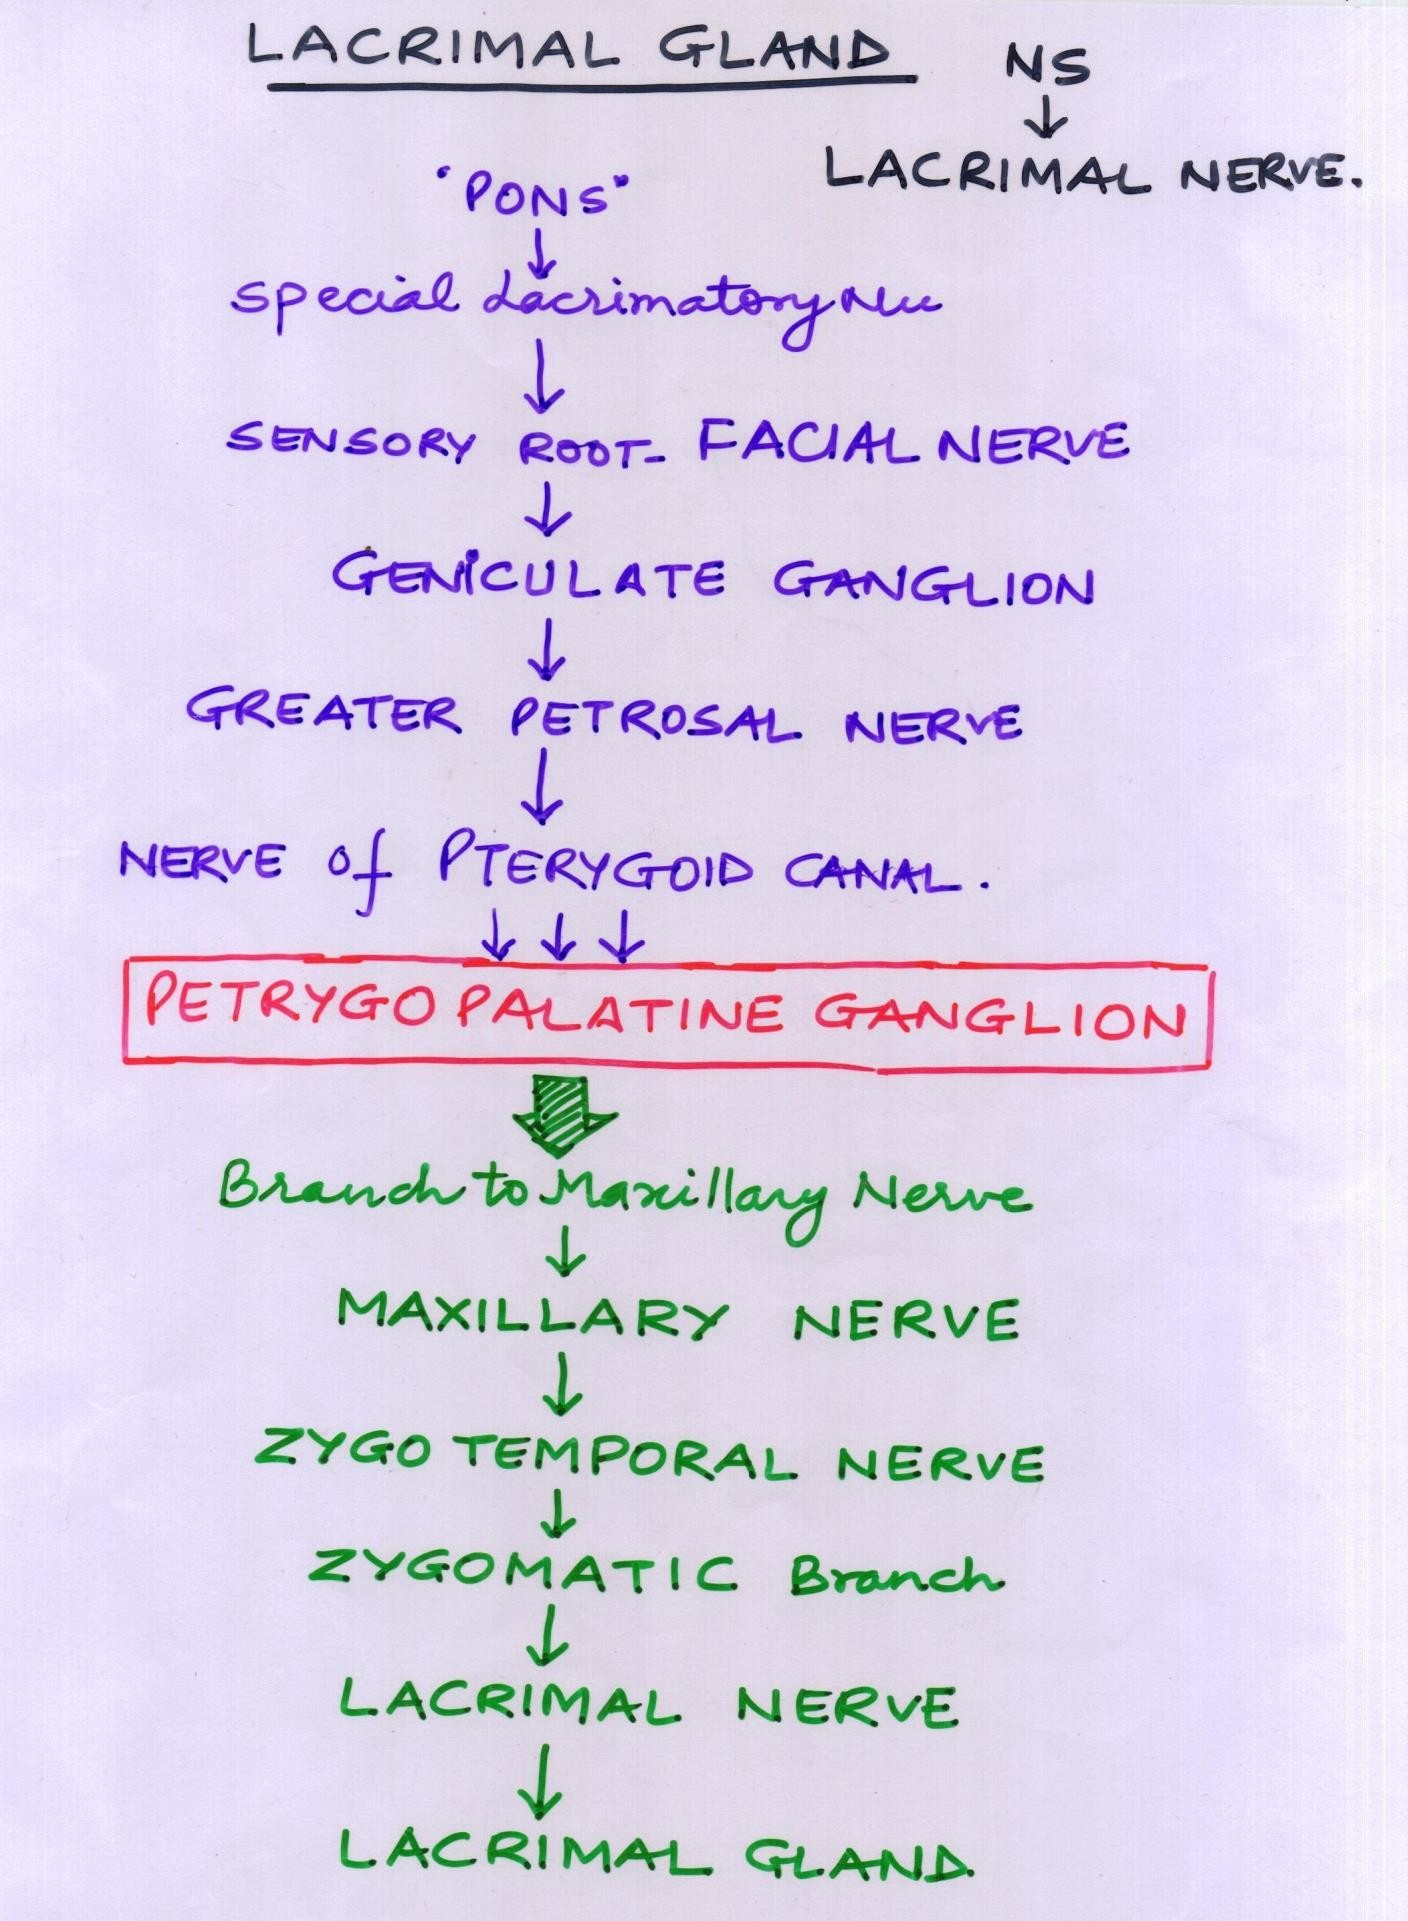 LACRIMAL GLAND
NS
↓
LACRIMAL NERVE.
"PONS"
↓
Special Lacrimatory Nu
↓
SENSORY ROOT- FACIAL NERVE
↓
GENICULATE GANGLION
↓
GREATER PETROSAL NERVE
↓
NERVE of PTERYGOID CANAL.
↓ ↓ ↓
PETRYGO PALATINE GANGLION
↓
Branch to Maxillary Nerve
↓
MAXILLARY NERVE
↓
ZYGO TEMPORAL NERVE
↓
ZYGOMATIC Branch
↓
LACRIMAL NERVE
↓
LACRIMAL GLAND